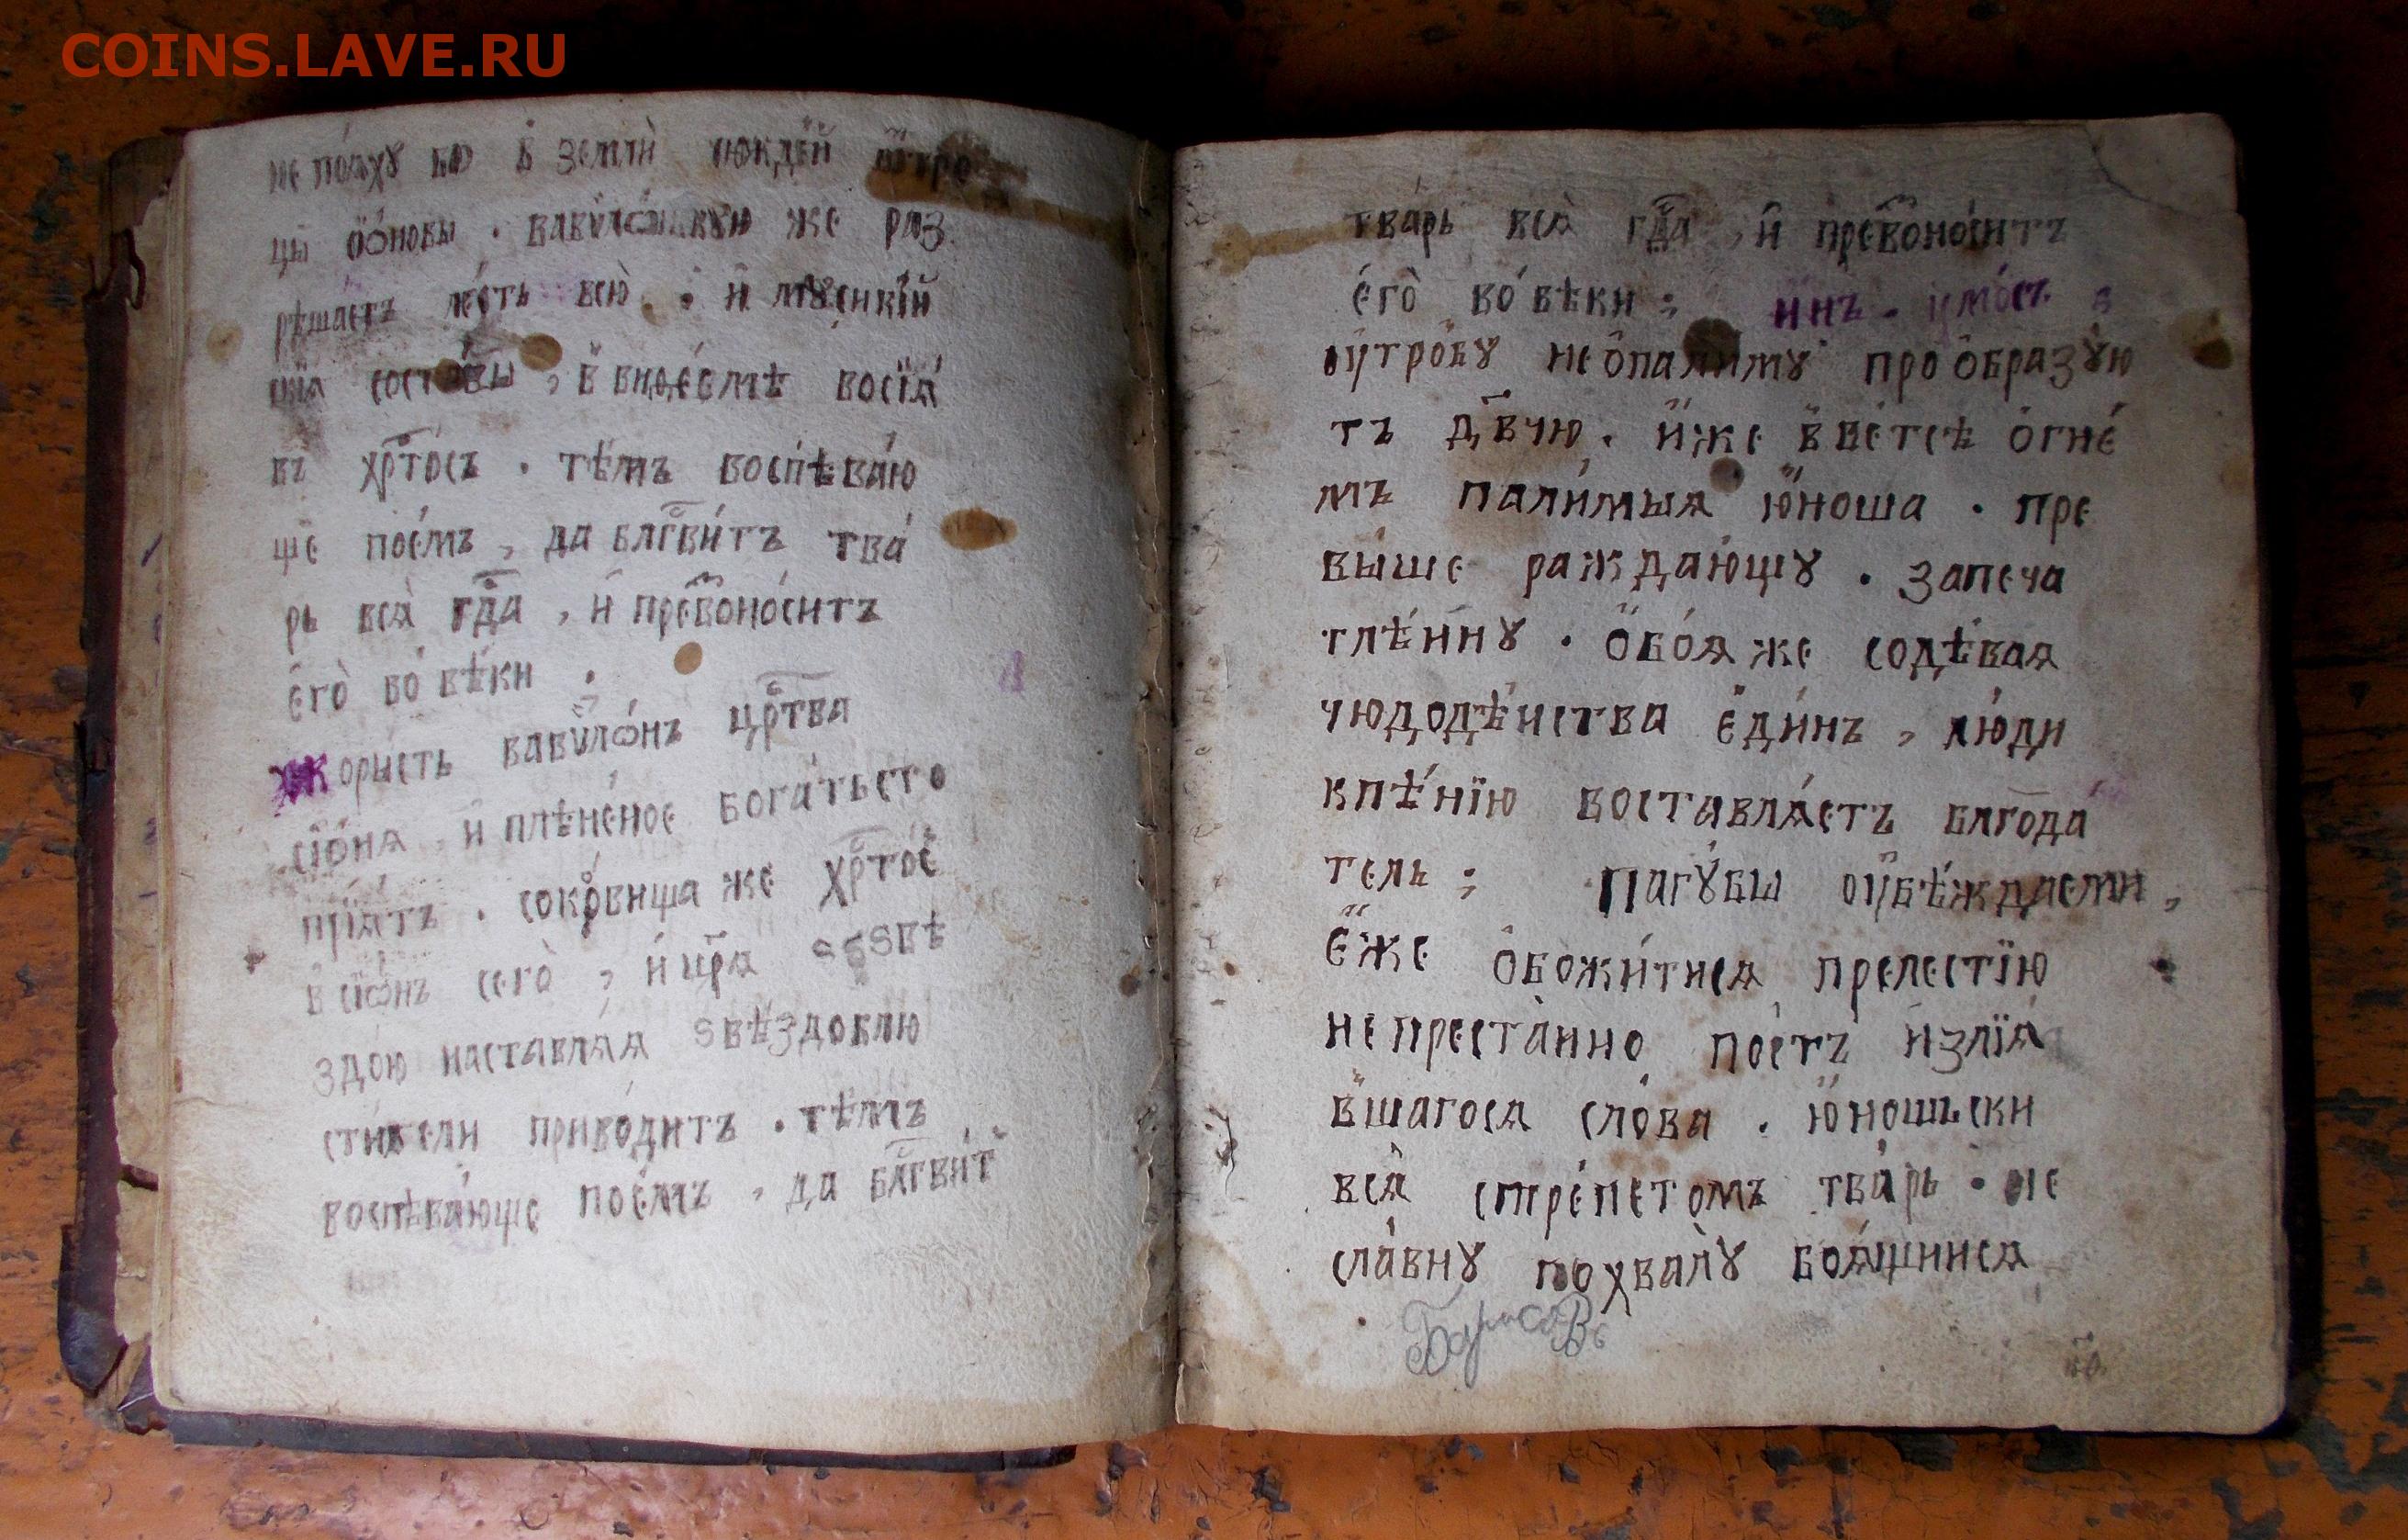 COINS.LAVE.RU
не поѧ́хꙋ бо в землѝ чюжде́й ѿтро
цы сїѡ́новы . вавѷлѡ́ньскꙋю же раз
рѣша́етъ ле́сть всю̀ . и мꙋсики́й
скїѧ соста́вы , в виѳлее́мѣ восїѧ́
въ хрⷭ҇то́съ . тѣ́мъ воспѣва́ю
ще пое́мъ , да блгⷭ҇ви́тъ тва́
рь всѧ̀ гдⷭ҇а , и превⷥоно́ситъ
єго̀ во вѣ́ки .
коры́сть вавѷлѡ́нъ црⷭ҇тва
сїо́на , и плѣне́ное бога́тьсто
прїѧ́тъ . сокро́вища же хрⷭ҇то́с
в сїѡ́нъ сего̀ , и цр҃ѧ ѕвѣ
здо́ю наставлѧ́ѧ ѕвѣздоблю
сти́тели приво́дитъ . тѣ́мъ
воспѣва́юще пое́мъ , да блгⷭ҇ви́т
тва́рь всѧ̀ гдⷭ҇а , и превⷥоно́ситъ
єго̀ во вѣ́ки ; и҆нъ . і҆рмо́съ
ѹтро́бꙋ неопали́мꙋ проѡбразꙋю
тъ дв҃чю . и́же в ветсѣ огне́
мъ пали́мыѧ ю́ноша . пре
вы́ше ражда́ющꙋ . запеча
тлѣ́ннꙋ . обо́ѧ же содѣ́ваѧ
чюдодѣ́иства єди́нъ , лю́ди
кпѣ́нїю воставлѧ́етъ блгⷭ҇ода́
тель ; Пагꙋ́бы ѹбѣ́ждаеми ,
є́же обожи́тисѧ прелестїю
непреста́нно пое́тъ излїѧ́
вшагосѧ сло́ва . ю́ношьски
всѧ̀ стре́петомъ тва́рь . не
сла́внꙋ похвалꙋ̀ боѧ́щиисѧ